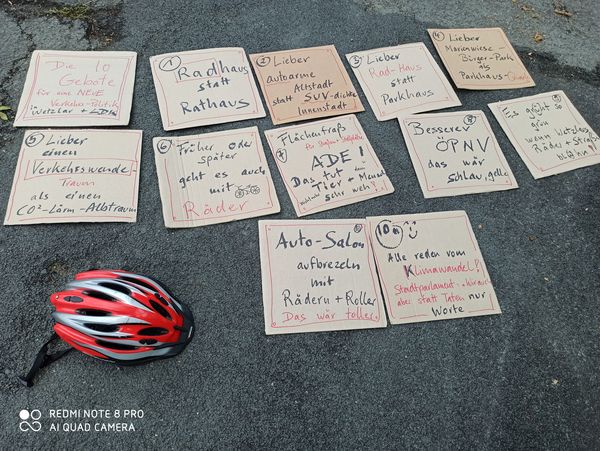 Die 10
Gebote
für eine NEUE
Verkehrs-Politik
Wetzlar + LDK
1
Radhaus
statt
Rathaus
2 Lieber
autoarme
Altstadt
statt SUV-dichte
Innenstadt
3 Lieber
Rad-Haus
statt
Parkhaus
4
Lieber
Marienwiese-
Bürger-Park
als
Parkhaus-
5 Lieber
einen
Verkehrswende-
Traum
als einen
CO²-Lärm-Albtraum
6 Früher oder
später
geht es auch
mit
Räder
7 Flächenfraß
für
ADE!
Das tut dem
Tier + Mensch
sehr weh!
8
Besserer
ÖPNV
das wär
schlau, gelle
Es grünt so
grün
wenn Wetzlars
Räder + Straß
blühn
Auto-Salon
aufbrezeln
mit
Rädern + Roller
Das wär toller.
10
Alle reden vom
Klimawandel!
Stadtparlament
aber statt Taten nur
Worte
REDMI NOTE 8 PRO
AI QUAD CAMERA